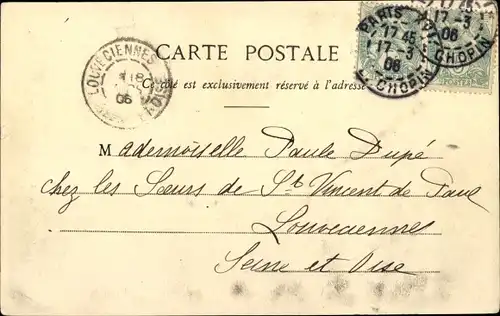 CARTE POSTALE
Ce côté est exclusivement réservé à l'adresse
PARIS
17 45
17 - 3
06
CHOPIN
17 - 3
06
CHOPIN
LOUVECIENNES
18
06
OISE
Mademoiselle Paule Dupé
chez les Sœurs de St Vincent de Paul
Louveciennes
Seine et Oise